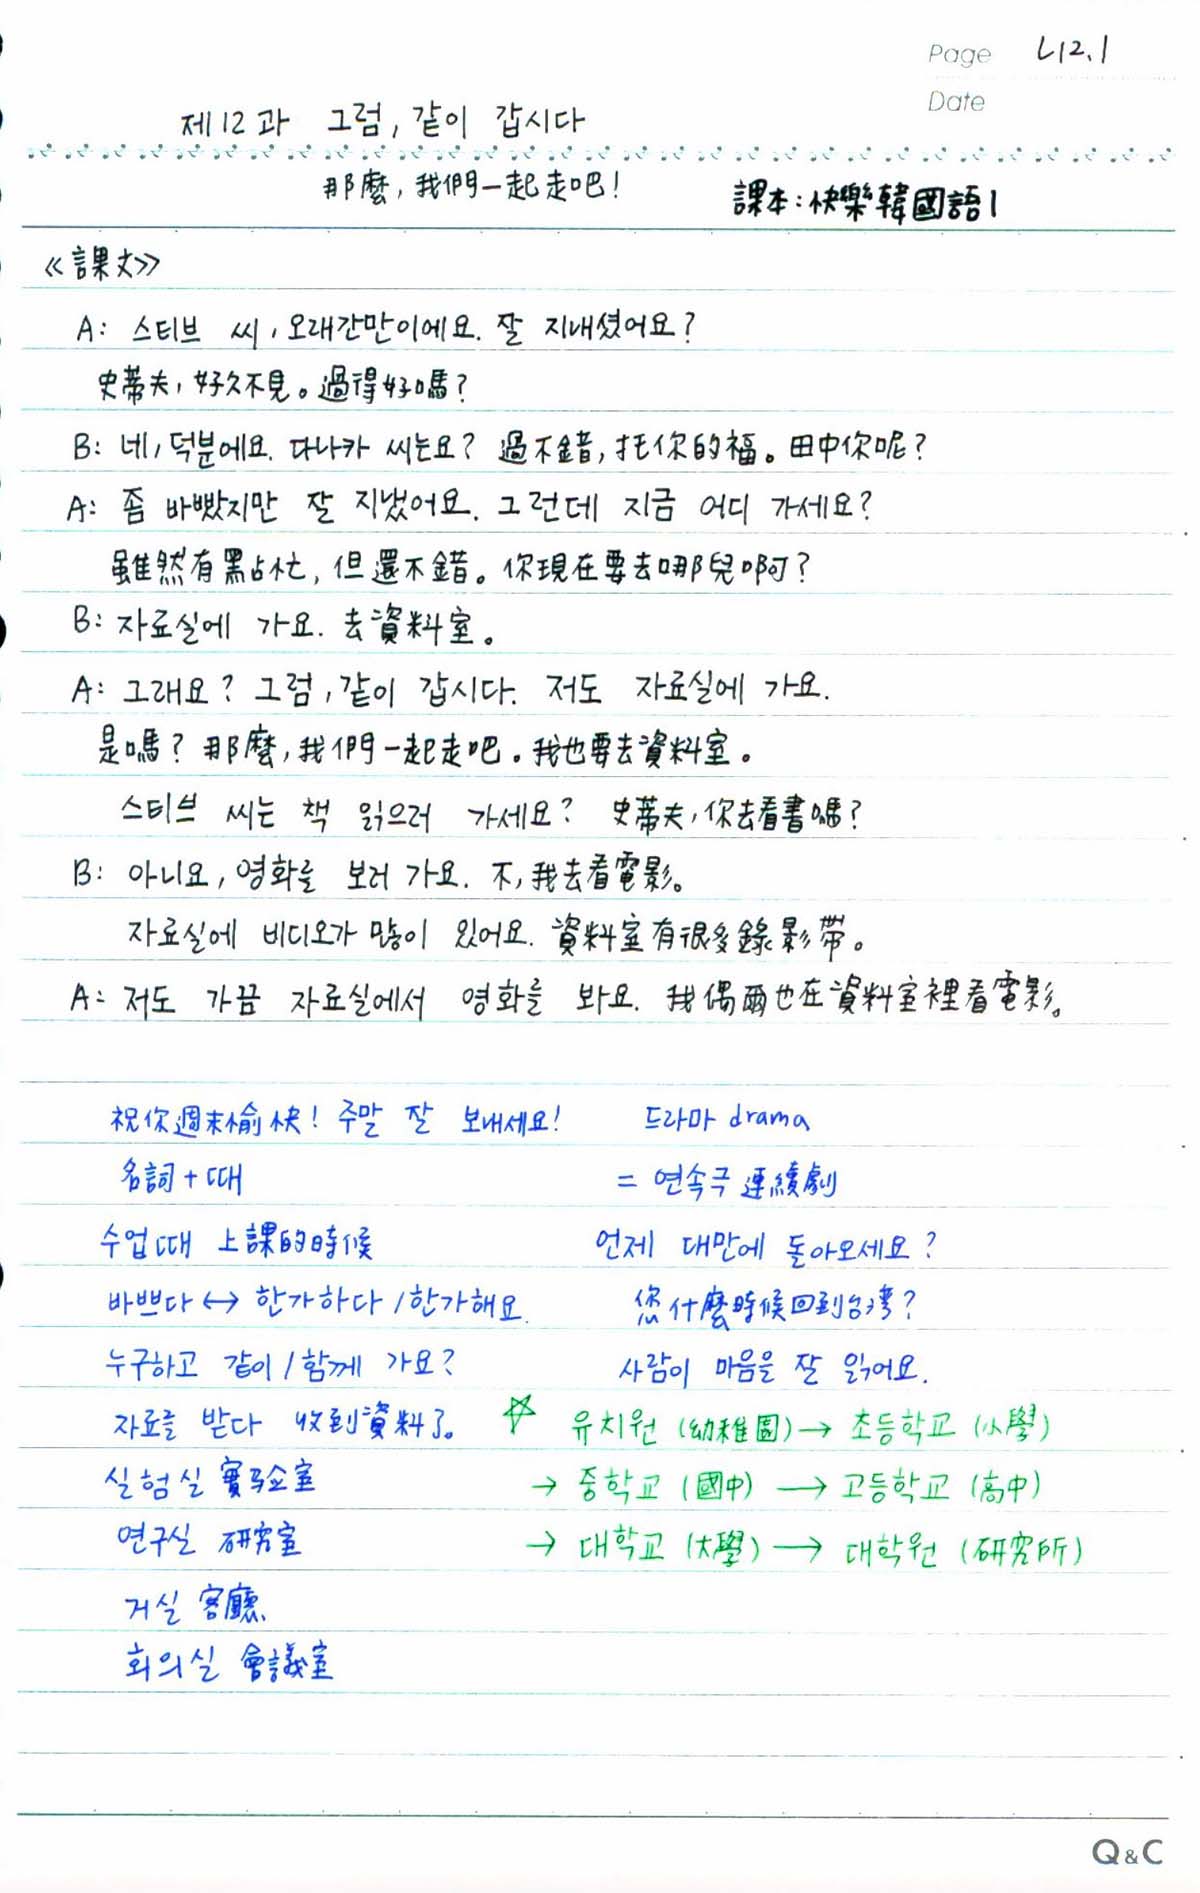 Page L12.1
Date
제12과 그럼, 같이 갑시다
那麼, 我們一起走吧!
課本: 快樂韓國語1
《課文》
A: 스티브 씨, 오래간만이에요. 잘 지내셨어요?
史蒂夫, 好久不見。過得好嗎?
B: 네, 덕분에요. 다나카 씨는요? 過不錯, 托你的福。田中你呢?
A: 좀 바빴지만 잘 지냈어요. 그런데 지금 어디 가세요?
雖然有點忙, 但還不錯。你現在要去哪兒啊?
B: 자료실에 가요. 去資料室。
A: 그래요? 그럼, 같이 갑시다. 저도 자료실에 가요.
是嗎? 那麼, 我們一起走吧。我也要去資料室。
스티브 씨는 책 읽으러 가세요? 史蒂夫, 你去看書嗎?
B: 아니요, 영화를 보러 가요. 不, 我去看電影。
자료실에 비디오가 많이 있어요. 資料室有很多錄影帶。
A: 저도 가끔 자료실에서 영화를 봐요. 我偶爾也在資料室裡看電影。
祝你週末愉快! 주말 잘 보내세요! 드라마 drama
名詞 + 때 = 연속극 連續劇
수업때 上課的時候 언제 대만에 돌아오세요?
바쁘다 ↔ 한가하다 / 한가해요. 您什麼時候回到台灣?
누구하고 같이 / 함께 가요? 사람이 마음을 잘 읽어요.
자료를 받다 收到資料了。 ☆ 유치원 (幼稚園) → 초등학교 (小學)
실험실 實驗室 → 중학교 (國中) → 고등학교 (高中)
연구실 研究室 → 대학교 (大學) → 대학원 (研究所)
거실 客廳
회의실 會議室
Q&C